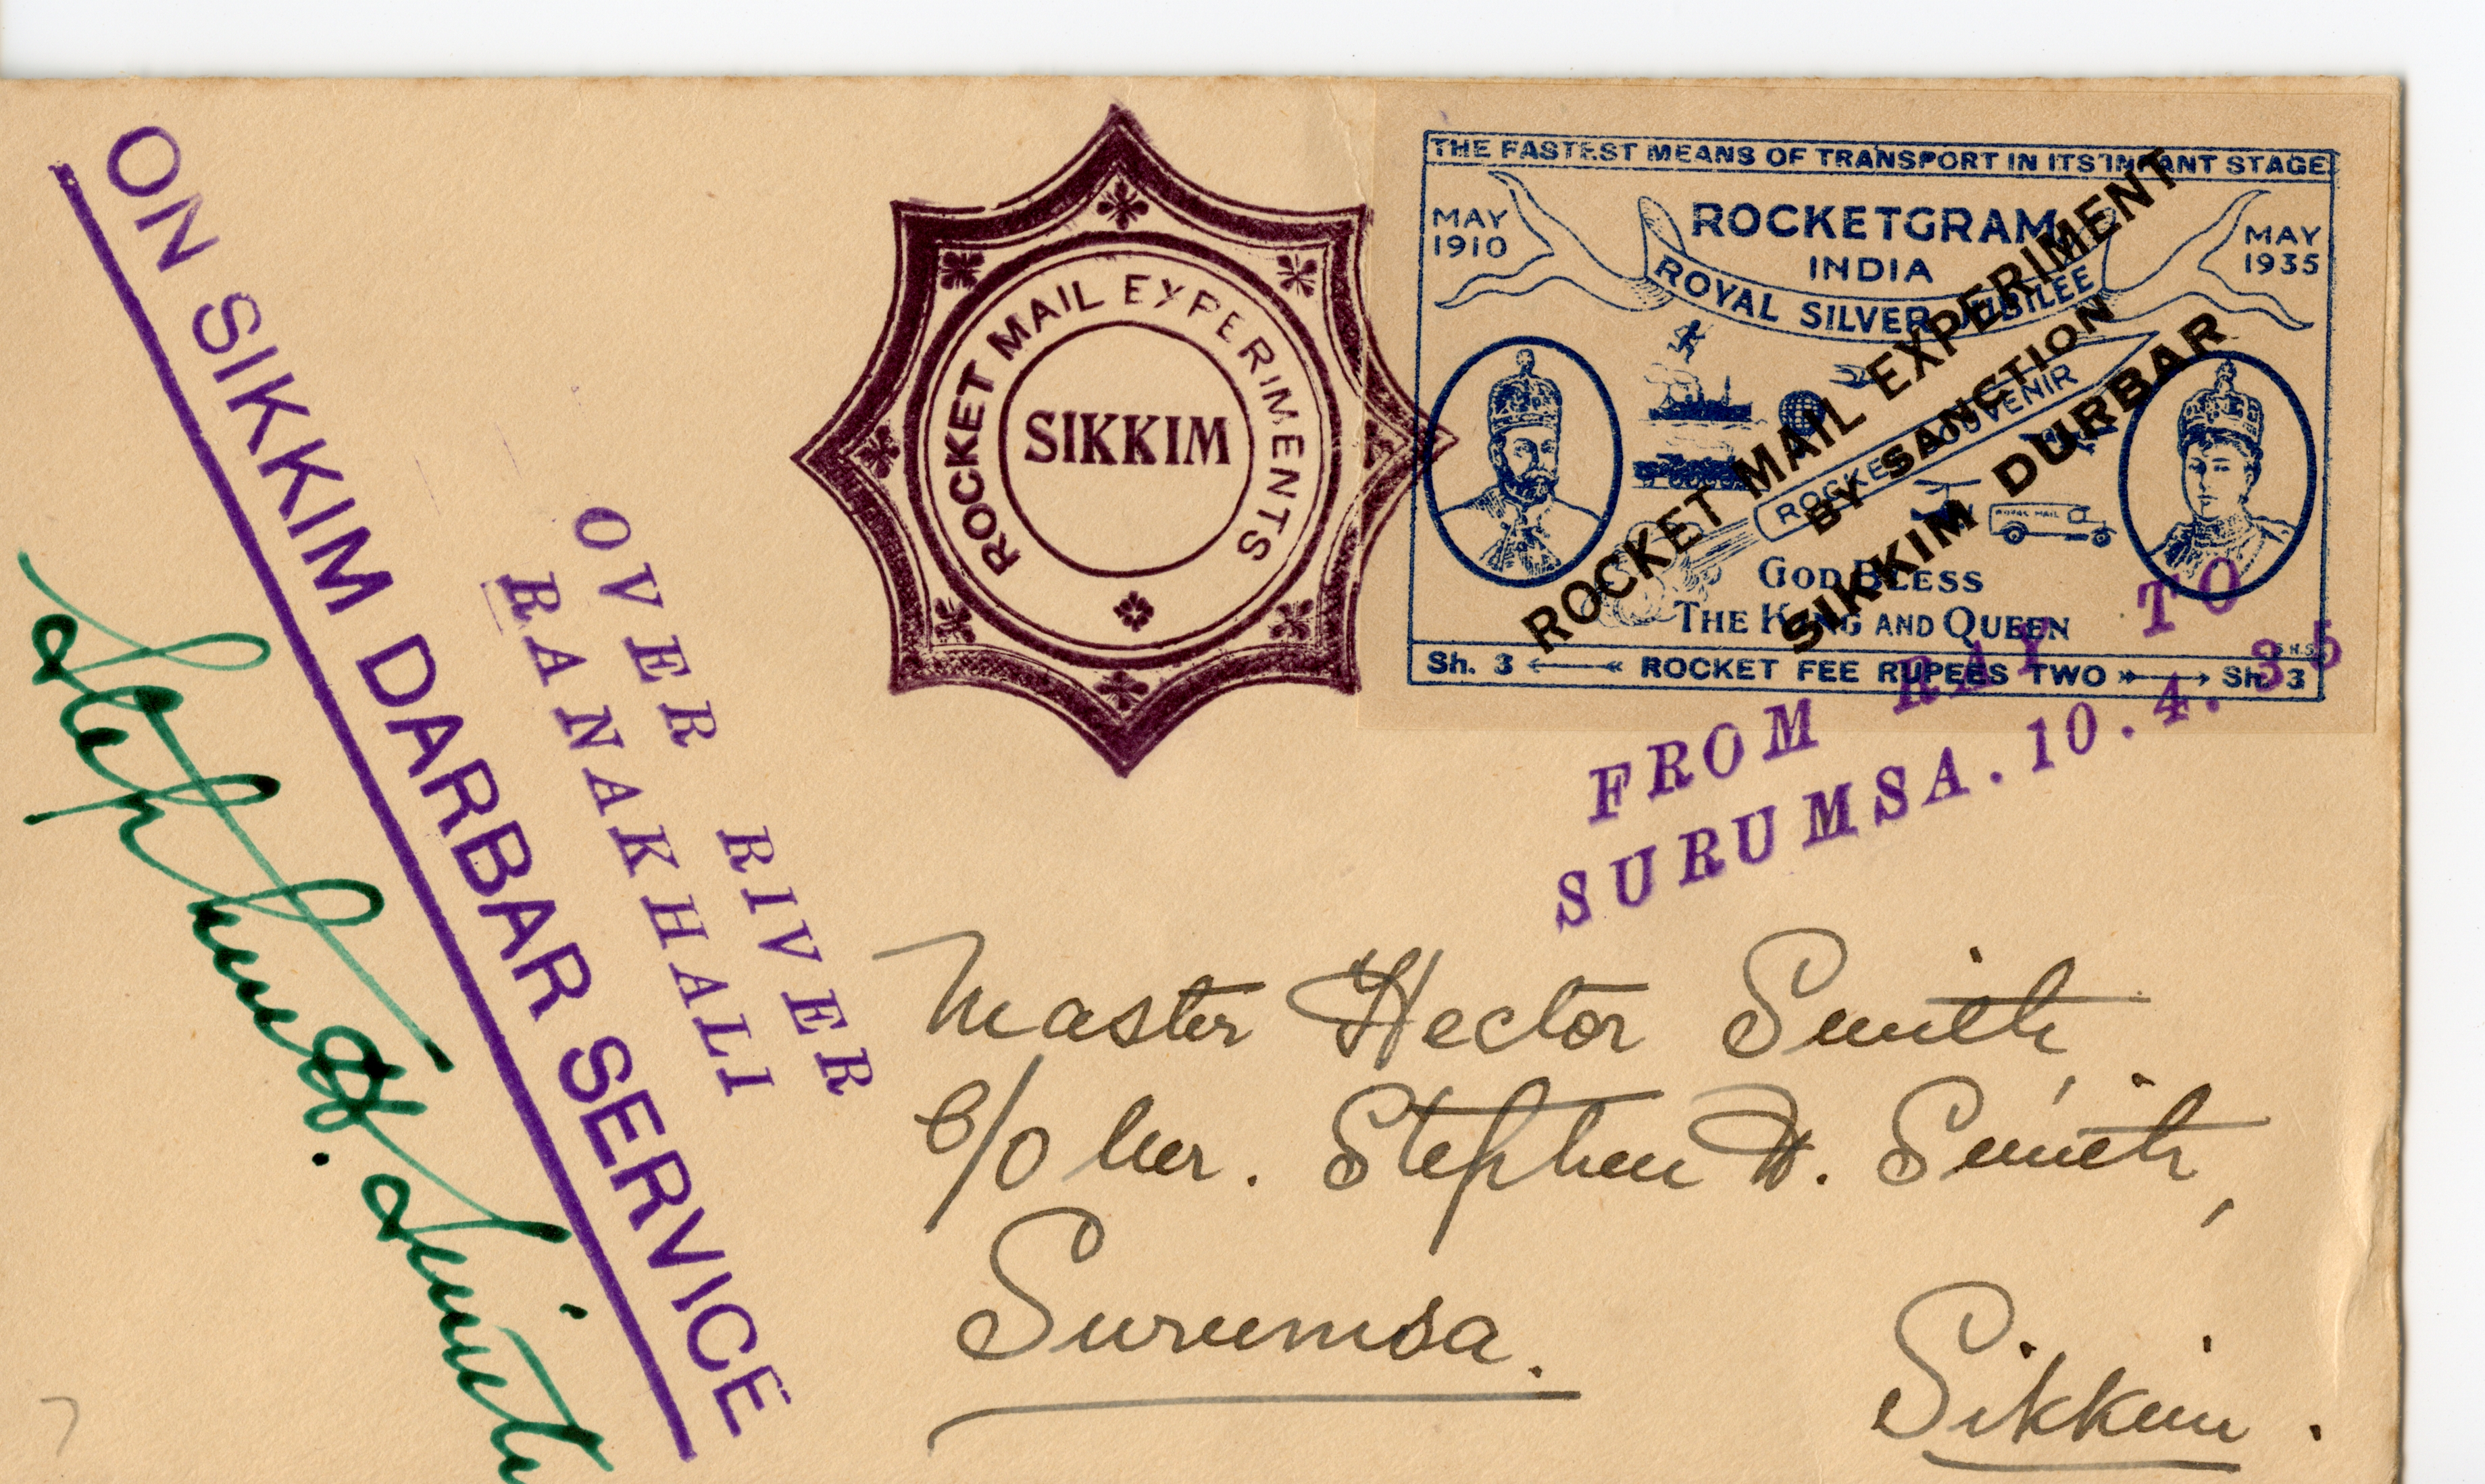 ON SIKKIM DARBAR SERVICE
Stephen H. Smith
OVER RIVER
RANAKHALI
ROCKET MAIL EXPERIMENTS
SIKKIM
THE FASTEST MEANS OF TRANSPORT IN ITS INFANT STAGE
MAY 1910
ROCKETGRAM
INDIA
MAY 1935
ROYAL SILVER JUBILEE
ROCKET SOUVENIR
ROYAL MAIL
GOD BLESS
THE KING AND QUEEN
Sh. 3 ROCKET FEE RUPEES TWO Sh. 3
ROCKET MAIL EXPERIMENT
BY SANCTION
SIKKIM DURBAR
FROM RAY TO
SURUMSA. 10. 4. 35
Master Hector Smith,
C/o Mr. Stephen H. Smith,
Surumsa.
Sikkim.